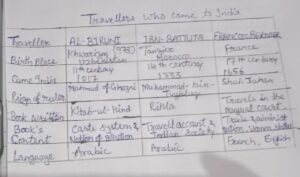 Travellers who came to India
Traveller AL-BIRUNI IBN-BATTUTA FRANCOIS BERNIER
Birth Place Khwarizm (973) Uzbekistan Tangier Morocco France
11th century 14th century 17th century
Came India 1017 1333 1656
Reign of ruler Mahmud of Ghazni Muhammad-bin- Shah Jahan
Book Written Kitab-ul-Hind Rihla Travels in the Mughal
Book's Content Caste system & Notion of Pollution Travell account & Indian Society Trade
Language Arabic Arabic French, English